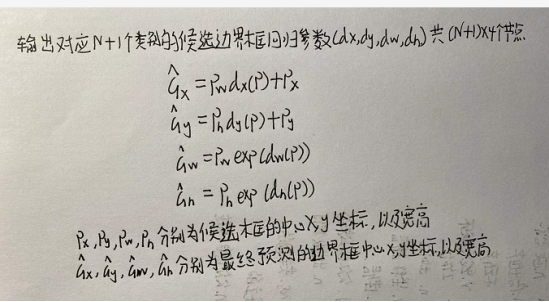 输出对应N+1个类别的候选边界框回归参数(dx,dy,dw,dh)共(N+1)x4个节点
Ĝx = Pw dx(P) + Px
Ĝy = Ph dy(P) + Py
Ĝw = Pw exp(dw(P))
Ĝh = Ph exp(dh(P))
Px,Py,Pw,Ph分别为候选框的中心x,y坐标,以及宽高
Ĝx,Ĝy,Ĝw,Ĝh分别为最终预测的边界框中心x,y坐标,以及宽高